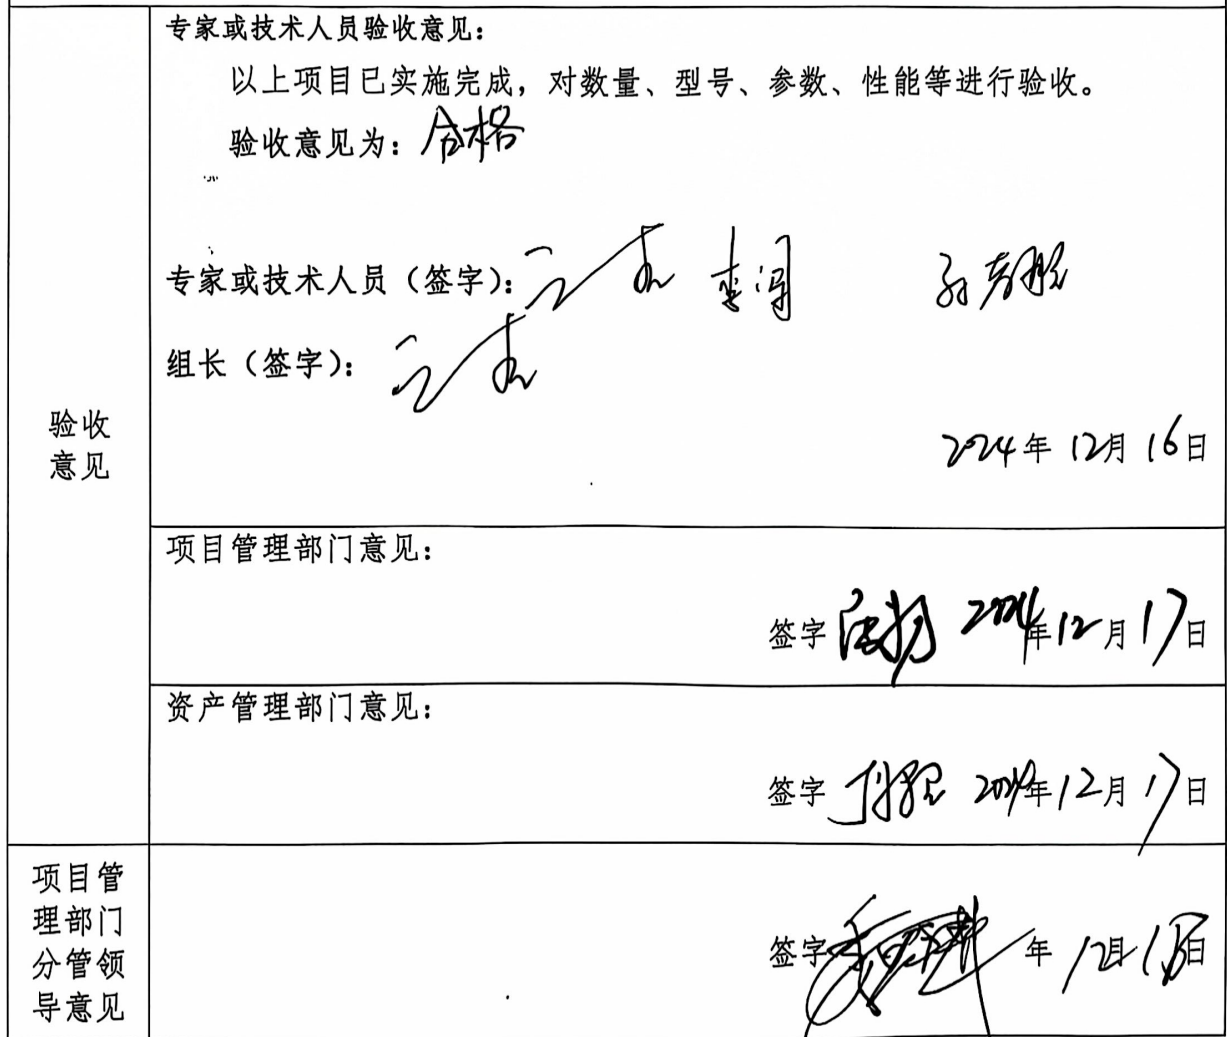 专家或技术人员验收意见：
以上项目已实施完成，对数量、型号、参数、性能等进行验收。
验收意见为：合格
专家或技术人员（签字）：
组长（签字）：
2024年12月16日
验收
意见
项目管理部门意见：
签字 2024年12月17日
资产管理部门意见：
签字 2024年12月17日
项目管
理部门
分管领
导意见
签字 年12月 日